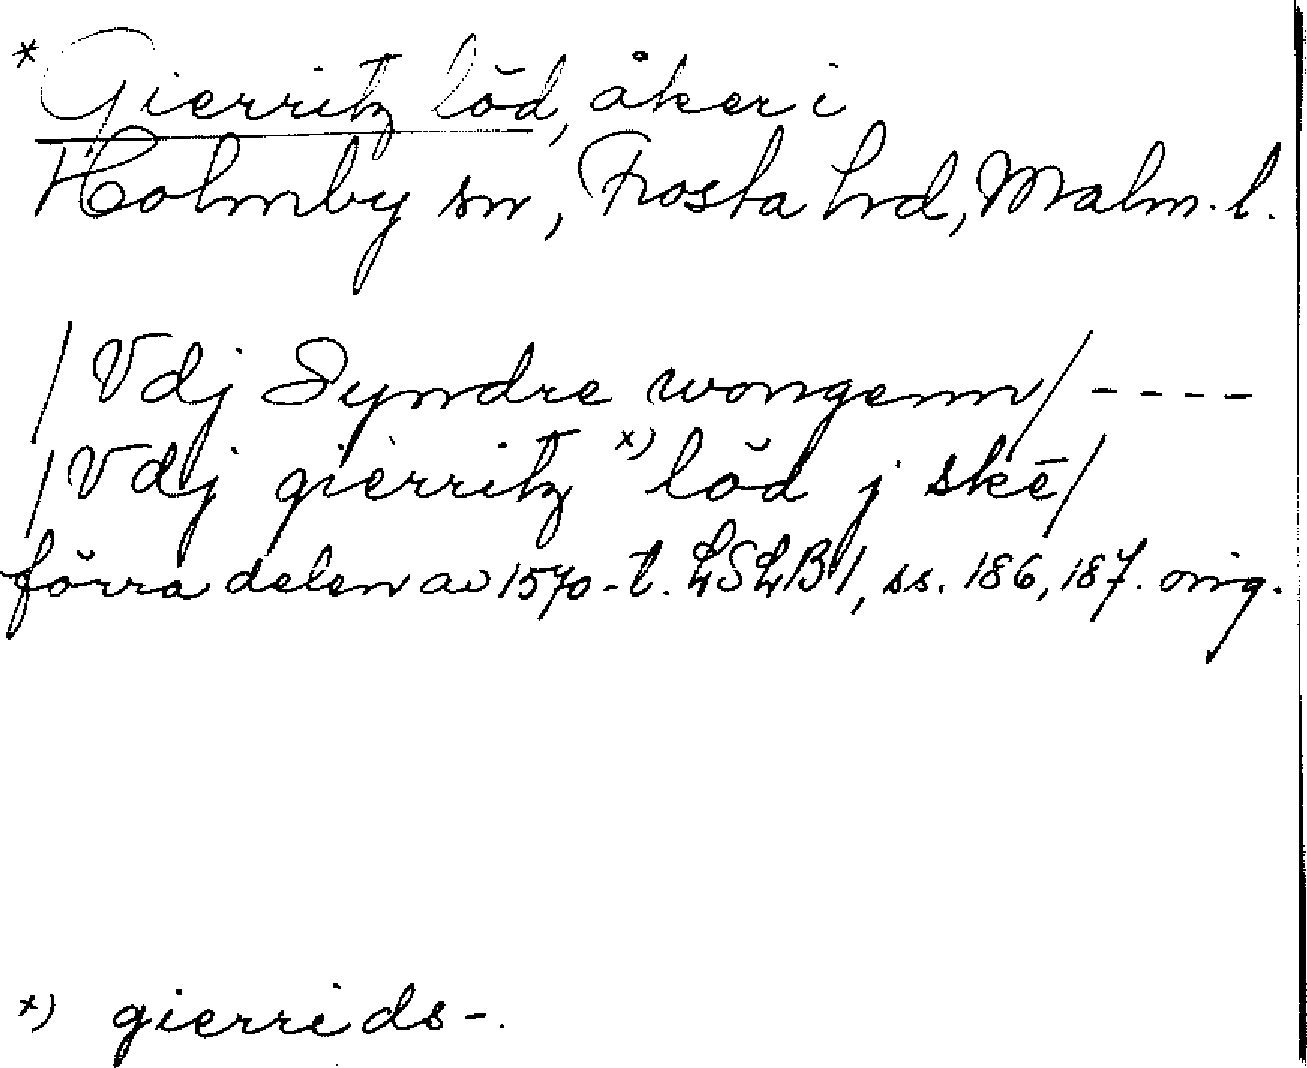 * Gierritz lŏd, åker i
Holmby sn, Frosta hrd, Malm. l.
/Vdj Syndre wongenn/ ----
/Vdj gierritz x) lŏd j skē/
förra delen av 1570-t. LSLB 1, ss. 186, 187. orig.
x) gierrids-.